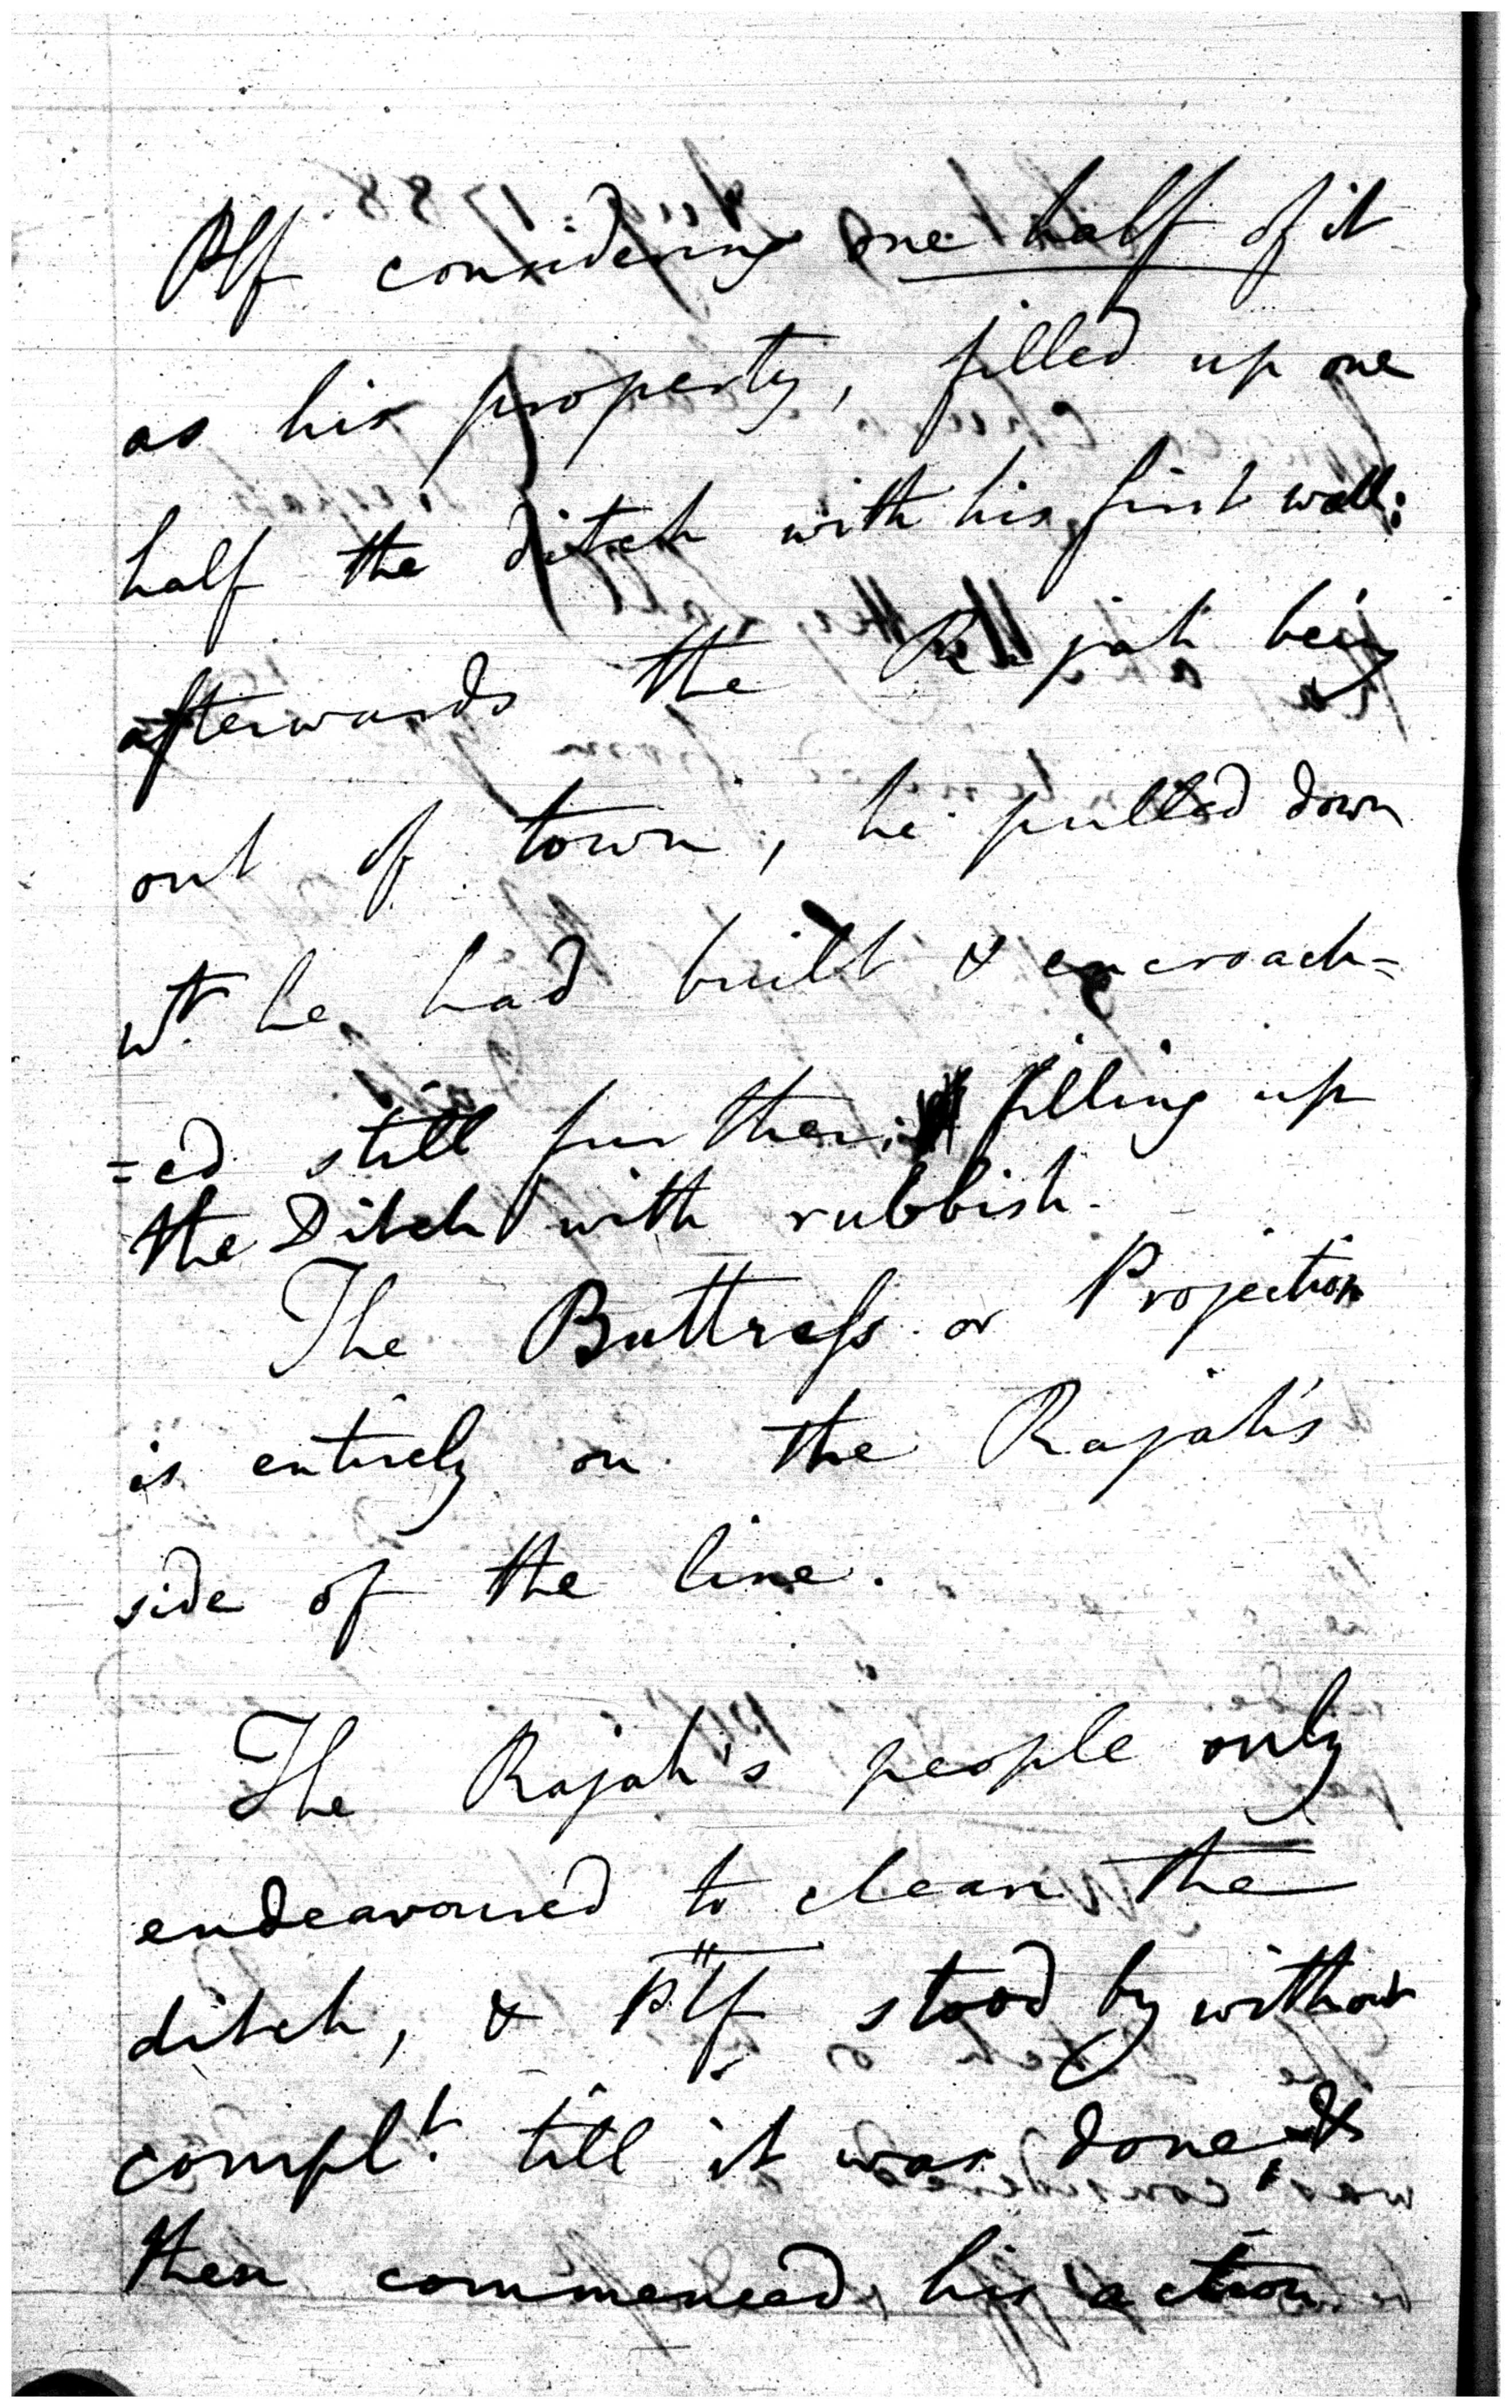 Plf considering one half of it
as his property, filled up one
half the ditch with his first wall;
afterwards the Rajah being
out of town, he pulled down
wt. he had built & encroach=
=ed still further; filling up
the Ditch with rubbish.
The Buttress or Projection
is entirely on the Rajah's
side of the line.
The Rajah's people only
endeavoured to clean the
ditch, & Plf stood by without
complt. till it was done, &
then commenced his action